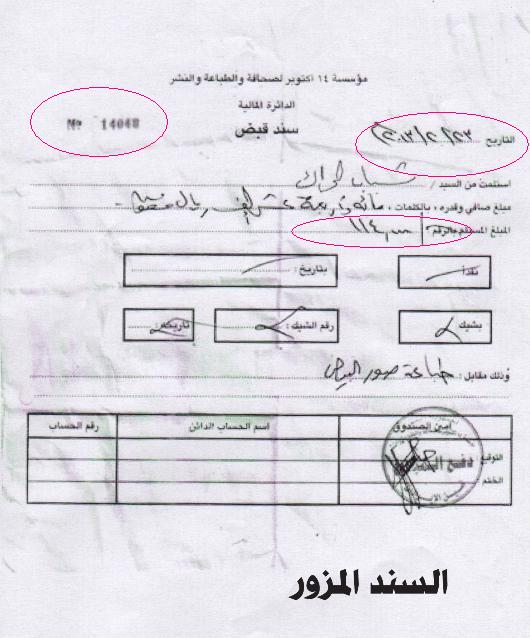 مؤسسة ١٤ اكتوبر لصحافة والطباعة والنشر
الدائرة المالية
Nº 14048
سند قبض
التاريخ ٢٠١٣/٢/٢٣
استلمت من السيد / شباب الحراك
مبلغ صافي وقدره ، بالكلمات ، مائة واربعة عشر الف ريال
المبلغ المستلم بالرقم ١١٤
نقداً بتاريخ :
بشيك رقم الشيك : تاريخه :
وذلك مقابل : طباعة صور البيض
أمين الصندوق اسم الحساب الدائن رقم الحساب
التوقيع :
الختم :
السند المزور